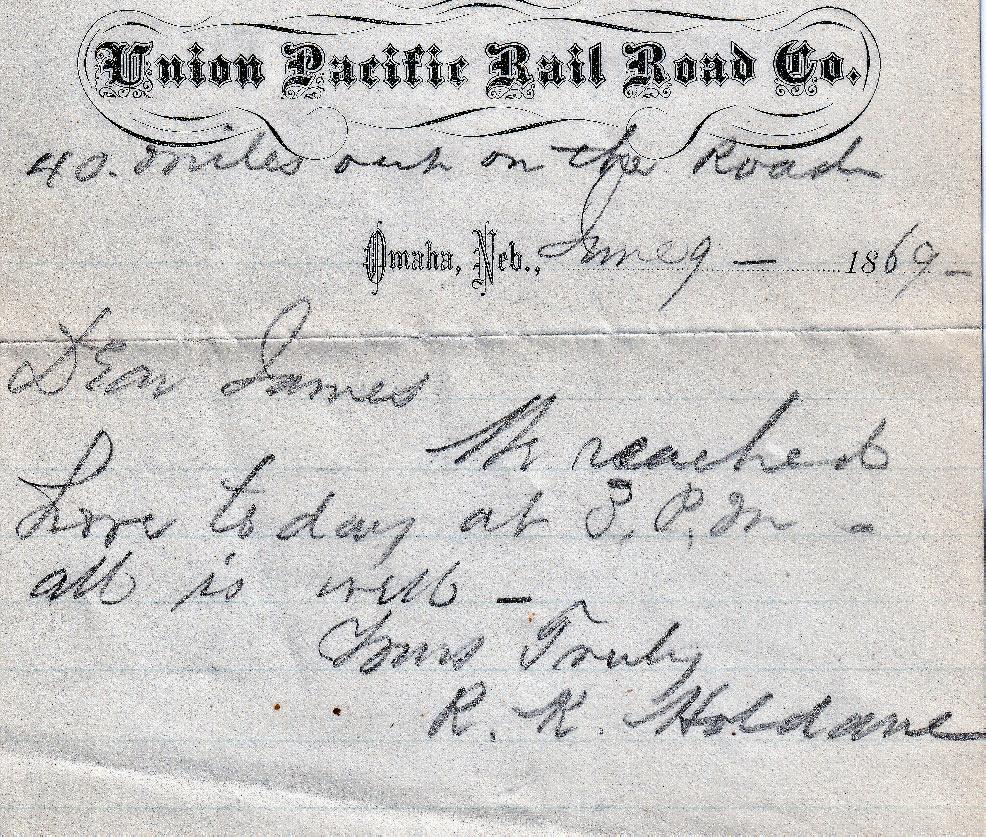 Union Pacific Rail Road Co.
40. miles out on the Road
Omaha, Neb., June 9 — 1869 -
Dear James
We reached
here to day at 3. P. M -
all is well -
Yours Truly
R. K. Holdane